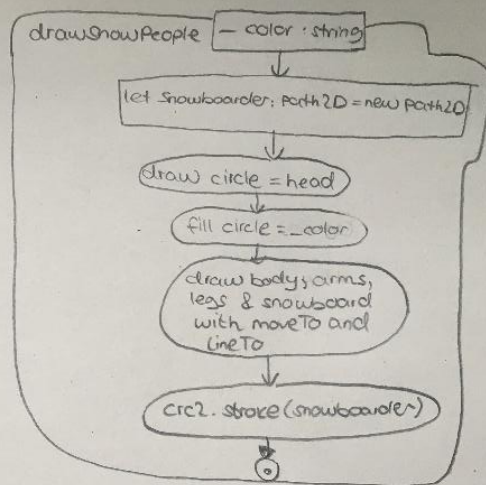 drawSnowPeople
_color: string
let snowboarder: path2D = new path2D
draw circle = head
fill circle = _color
draw body, arms,
legs & snowboard
with moveTo and
lineTo
crc2.stroke(snowboarder)